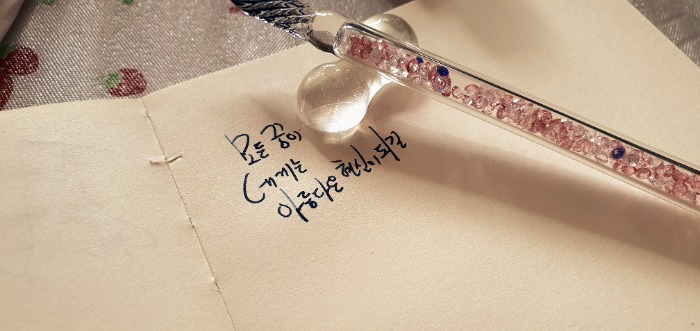 모든 꿈이
내게는
아름다운 현실이 되길